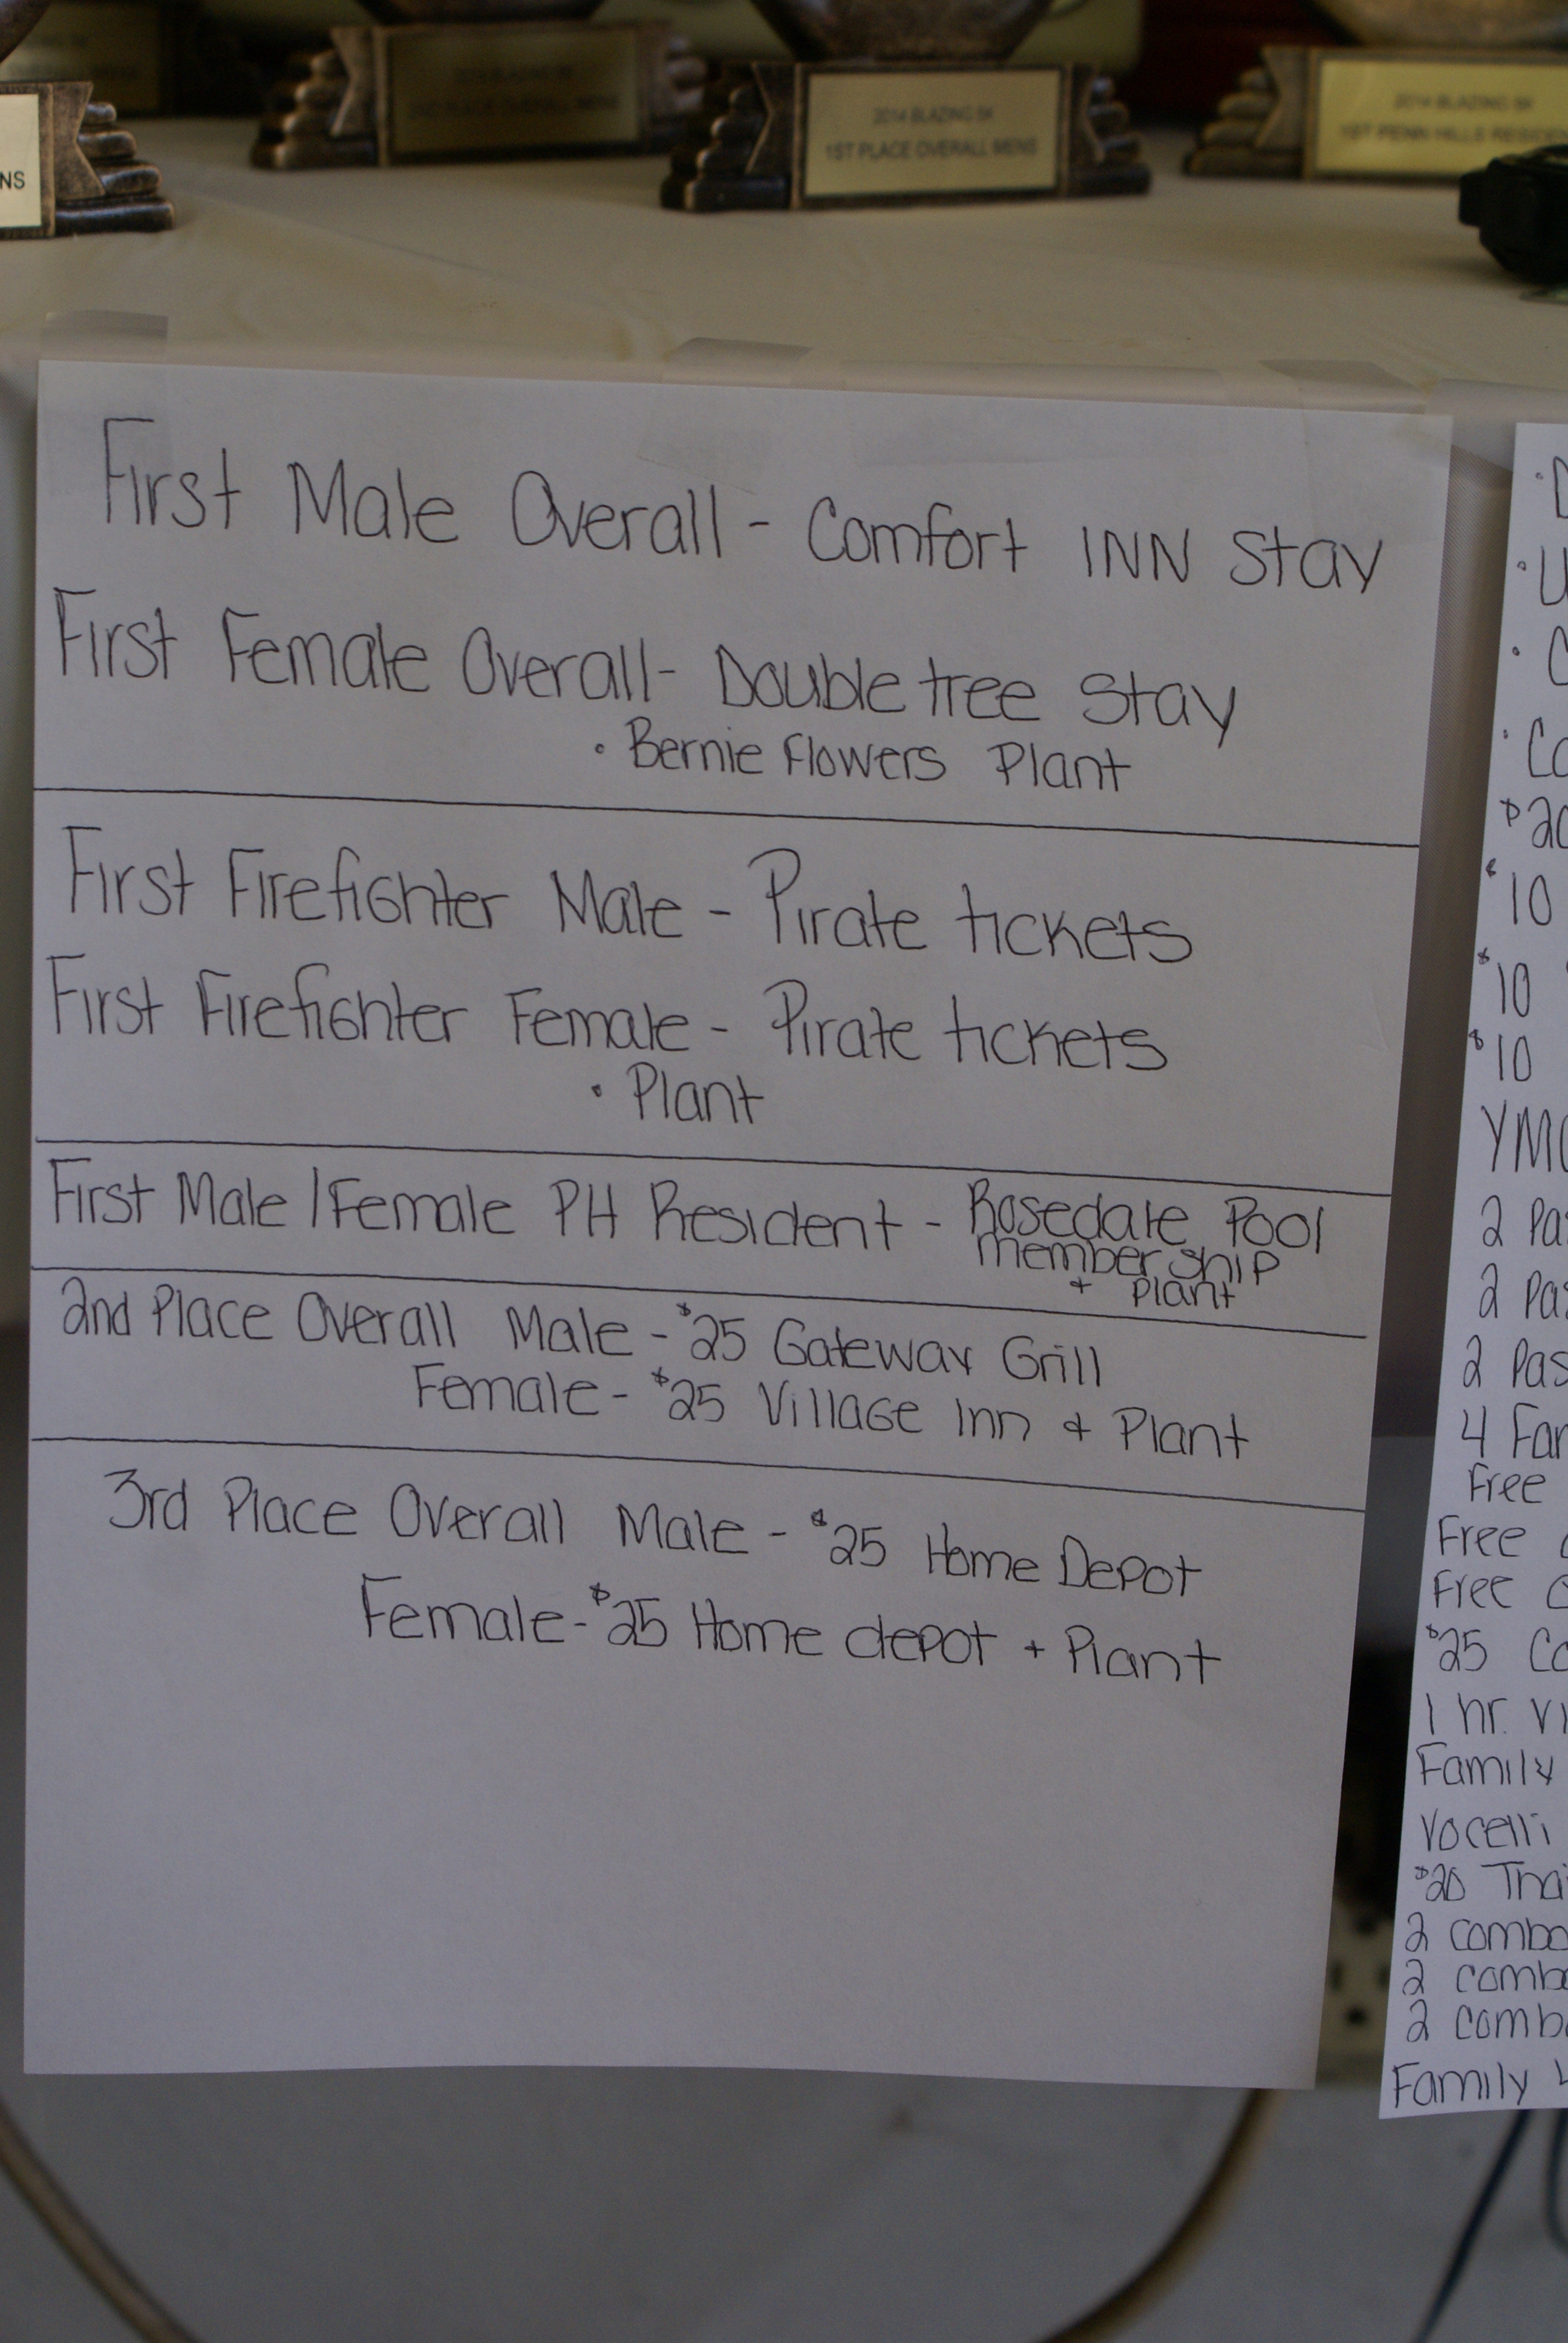 NS
2014 BLAZING 5K
1ST PLACE OVERALL MENS
2014 BLAZING 5K
1ST PENN HILLS
First Male Overall - Comfort INN Stay
First Female Overall- Doubletree Stay
• Bernie Flowers Plant
First Firefighter Male - Pirate tickets
First Firefighter Female - Pirate tickets
• Plant
First Male/Female PH Resident - Rosedale Pool
membership
+ Plant
2nd Place Overall Male - $25 Gateway Grill
Female - $25 Village Inn + Plant
3rd Place Overall Male - $25 Home Depot
Female - $25 Home depot + Plant
$20
$10
$10
$10
2
2
2
4
Free
Free
Free
$25
1 hr.
Family
Vocelli
$20
2
2
2
Family